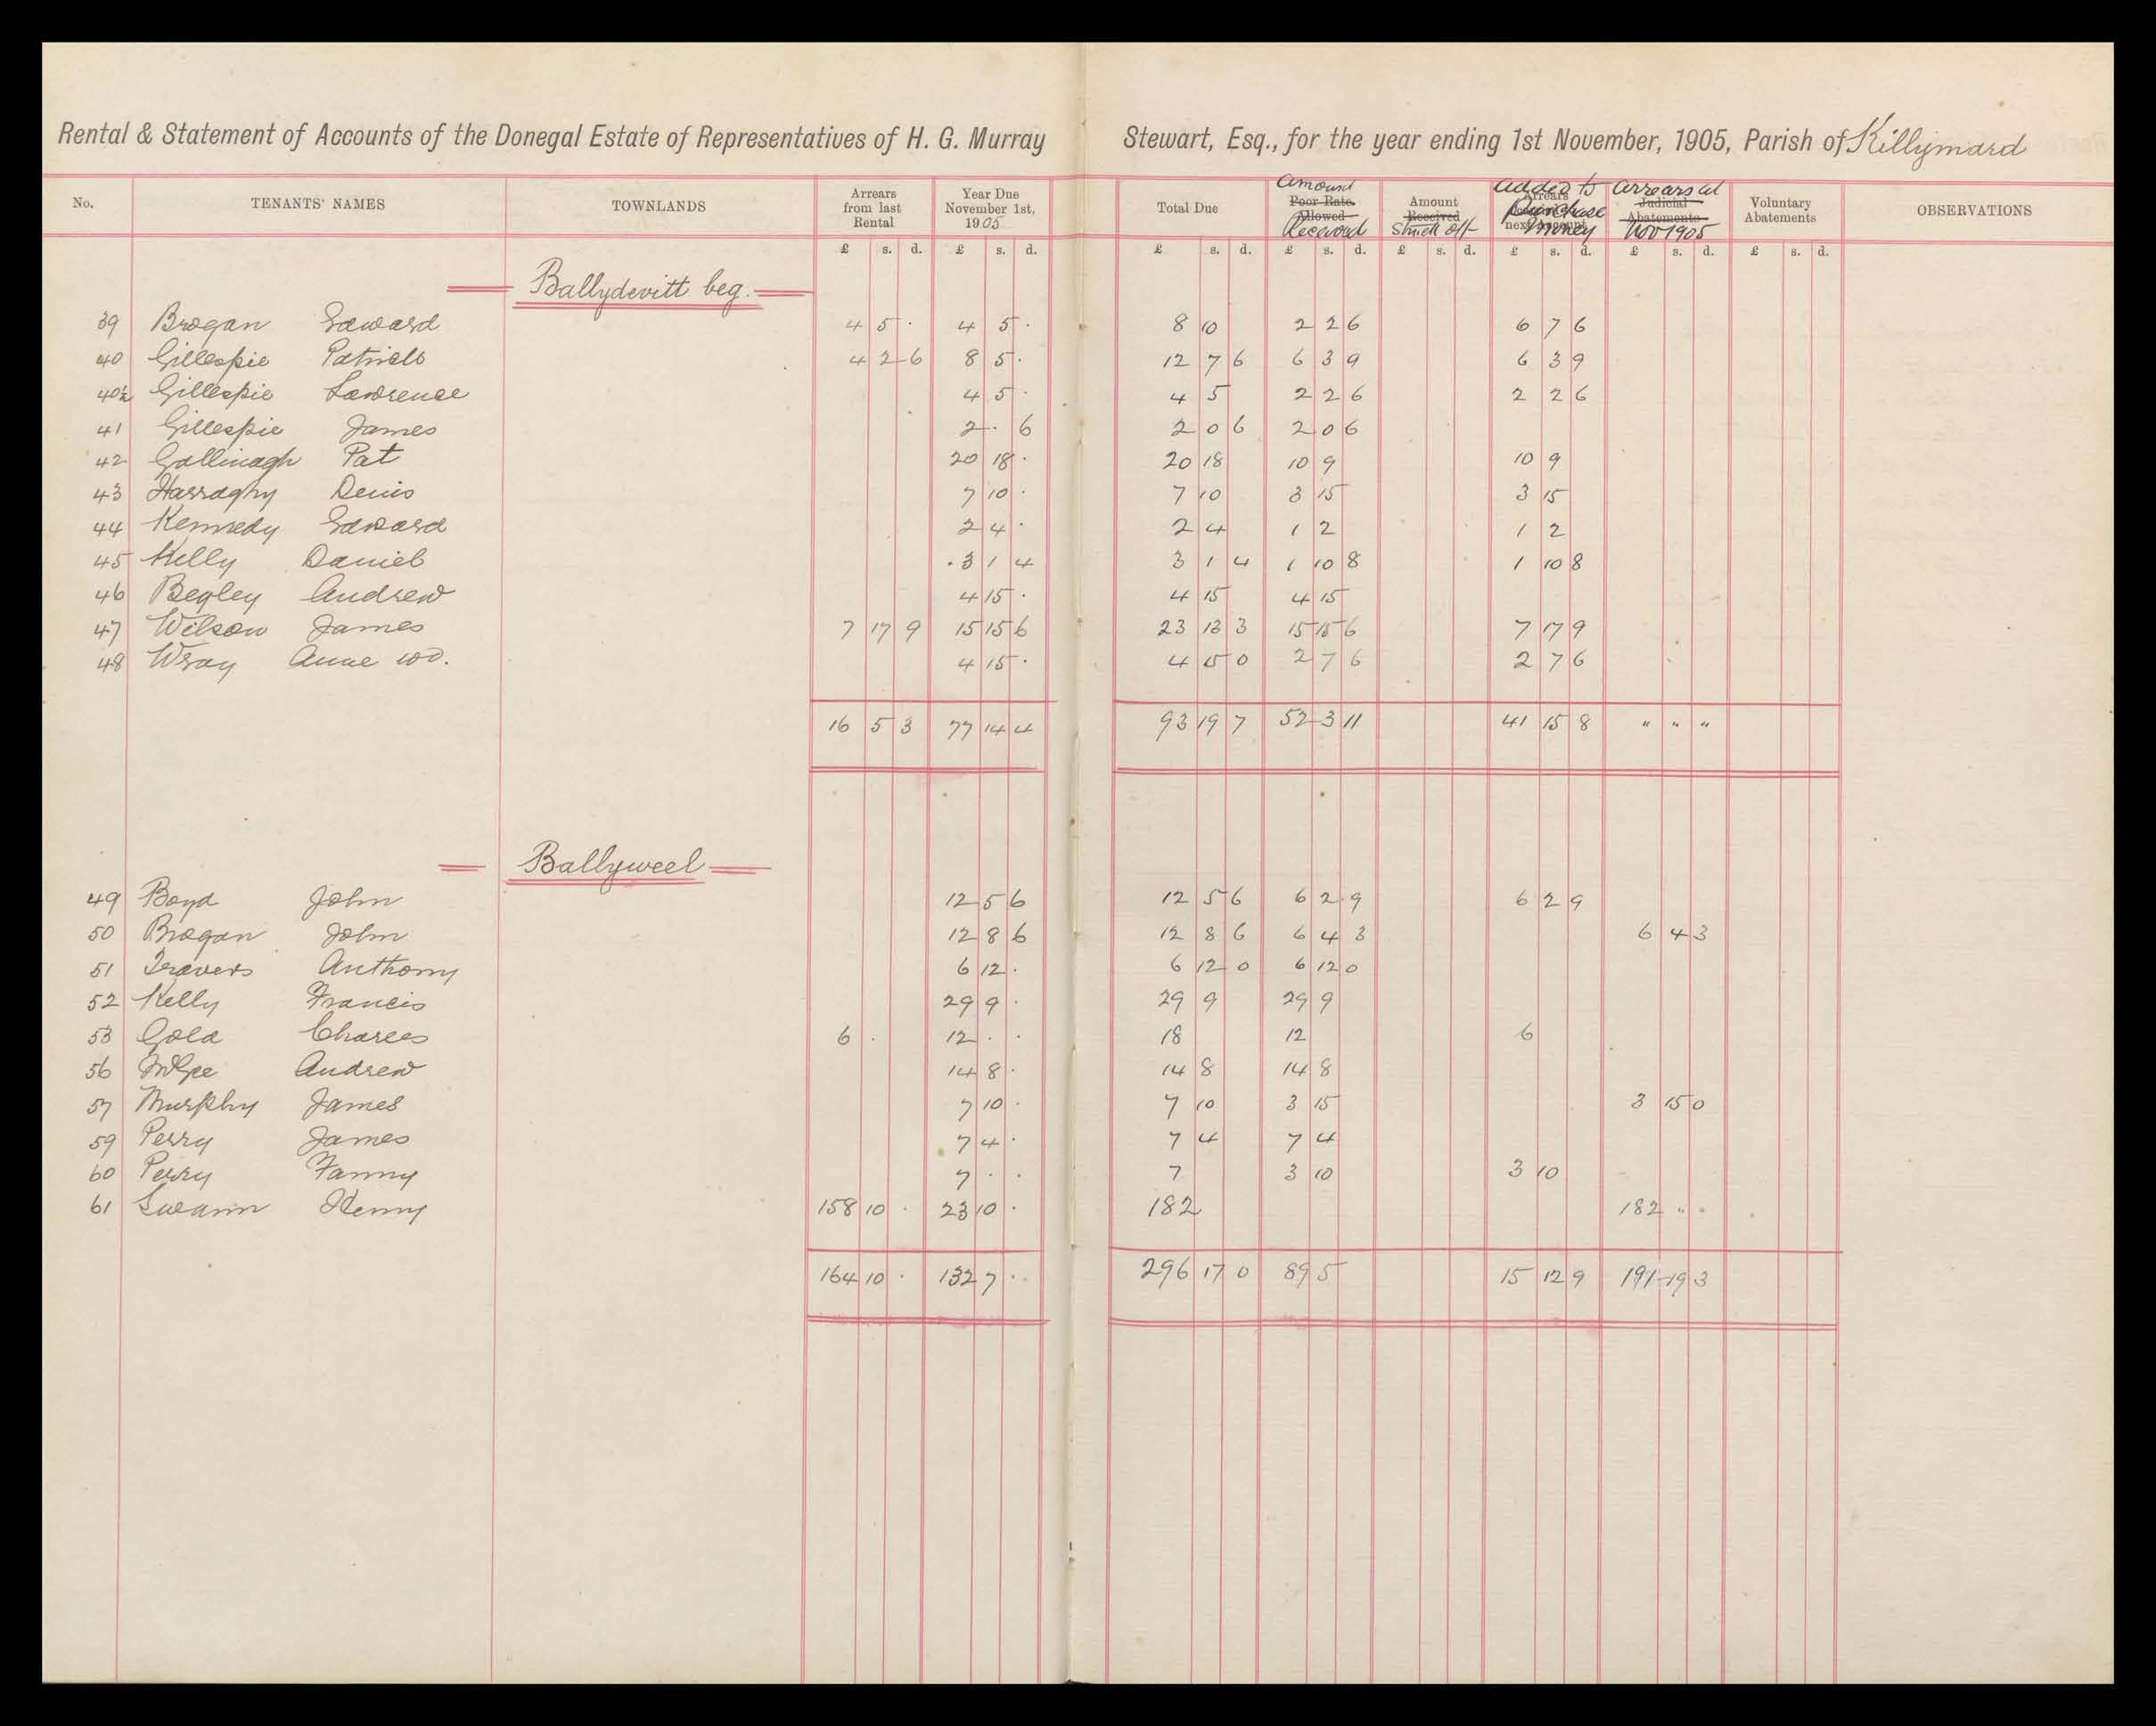 Rental & Statement of Accounts of the Donegal Estate of Representatives of H. G. Murray Stewart, Esq., for the year ending 1st November, 1905, Parish of Killymard
No. TENANTS' NAMES TOWNLANDS Arrears from last Rental Year Due November 1st, 1905 Total Due Amount Poor Rate Allowed Received Amount Received Struck off Added to Arrears Purchase Money next Arrears at Judicial Abatements Nov 1905 Voluntary Abatements OBSERVATIONS
£ s. d. £ s. d. £ s. d. £ s. d. £ s. d. £ s. d. £ s. d. £ s. d.
Ballydevitt beg.
39 Brogan Edward 4 5 . 4 5 . 8 10 2 2 6 6 7 6
40 Gillespie Patrick 4 2 6 8 5 . 12 7 6 6 3 9 6 3 9
40½ Gillespie Lawrence 4 5 . 4 5 2 2 6 2 2 6
41 Gillespie James 2 . 6 2 0 6 2 0 6
42 Gallinagh Pat 20 18 . 20 18 10 9 10 9
43 Harraghy Denis 7 10 . 7 10 3 15 3 15
44 Kennedy Edward 2 4 . 2 4 1 2 1 2
45 Kelly Daniel 3 1 4 3 1 4 1 10 8 1 10 8
46 Begley Andrew 4 15 . 4 15 4 15
47 Wilson James 7 17 9 15 15 6 23 13 3 15 15 6 7 17 9
48 Wray Anne wd. 4 15 . 4 15 0 2 7 6 2 7 6
16 5 3 77 14 4 93 19 7 52 3 11 41 15 8 " " "
Ballyweel
49 Boyd John 12 5 6 12 5 6 6 2 9 6 2 9
50 Brogan John 12 8 6 12 8 6 6 4 3 6 4 3
51 Travers Anthony 6 12 . 6 12 0 6 12 0
52 Kelly Francis 29 9 . 29 9 29 9
53 Gold Charles 6 . 12 . . 18 12 6
56 McGee Andrew 14 8 . 14 8 14 8
57 Murphy James 7 10 . 7 10 3 15 3 15 0
59 Perry James 7 4 . 7 4 7 4
60 Perry Fanny 7 . . 7 3 10 3 10
61 Swann Henry 158 10 . 23 10 . 182 182 " "
164 10 . 132 7 . 296 17 0 89 5 15 12 9 191 19 3